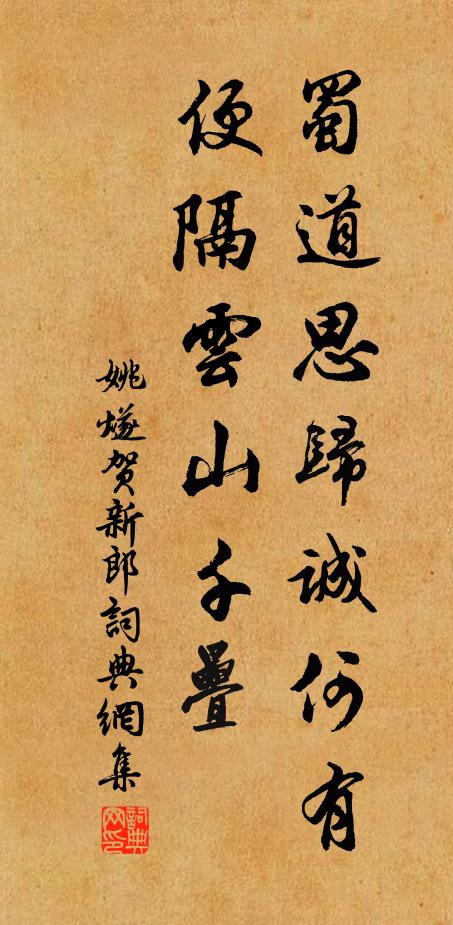 蜀道思歸誠何有
便隔雲山千疊
姚燧賀新郎詞典網集
詞典网印